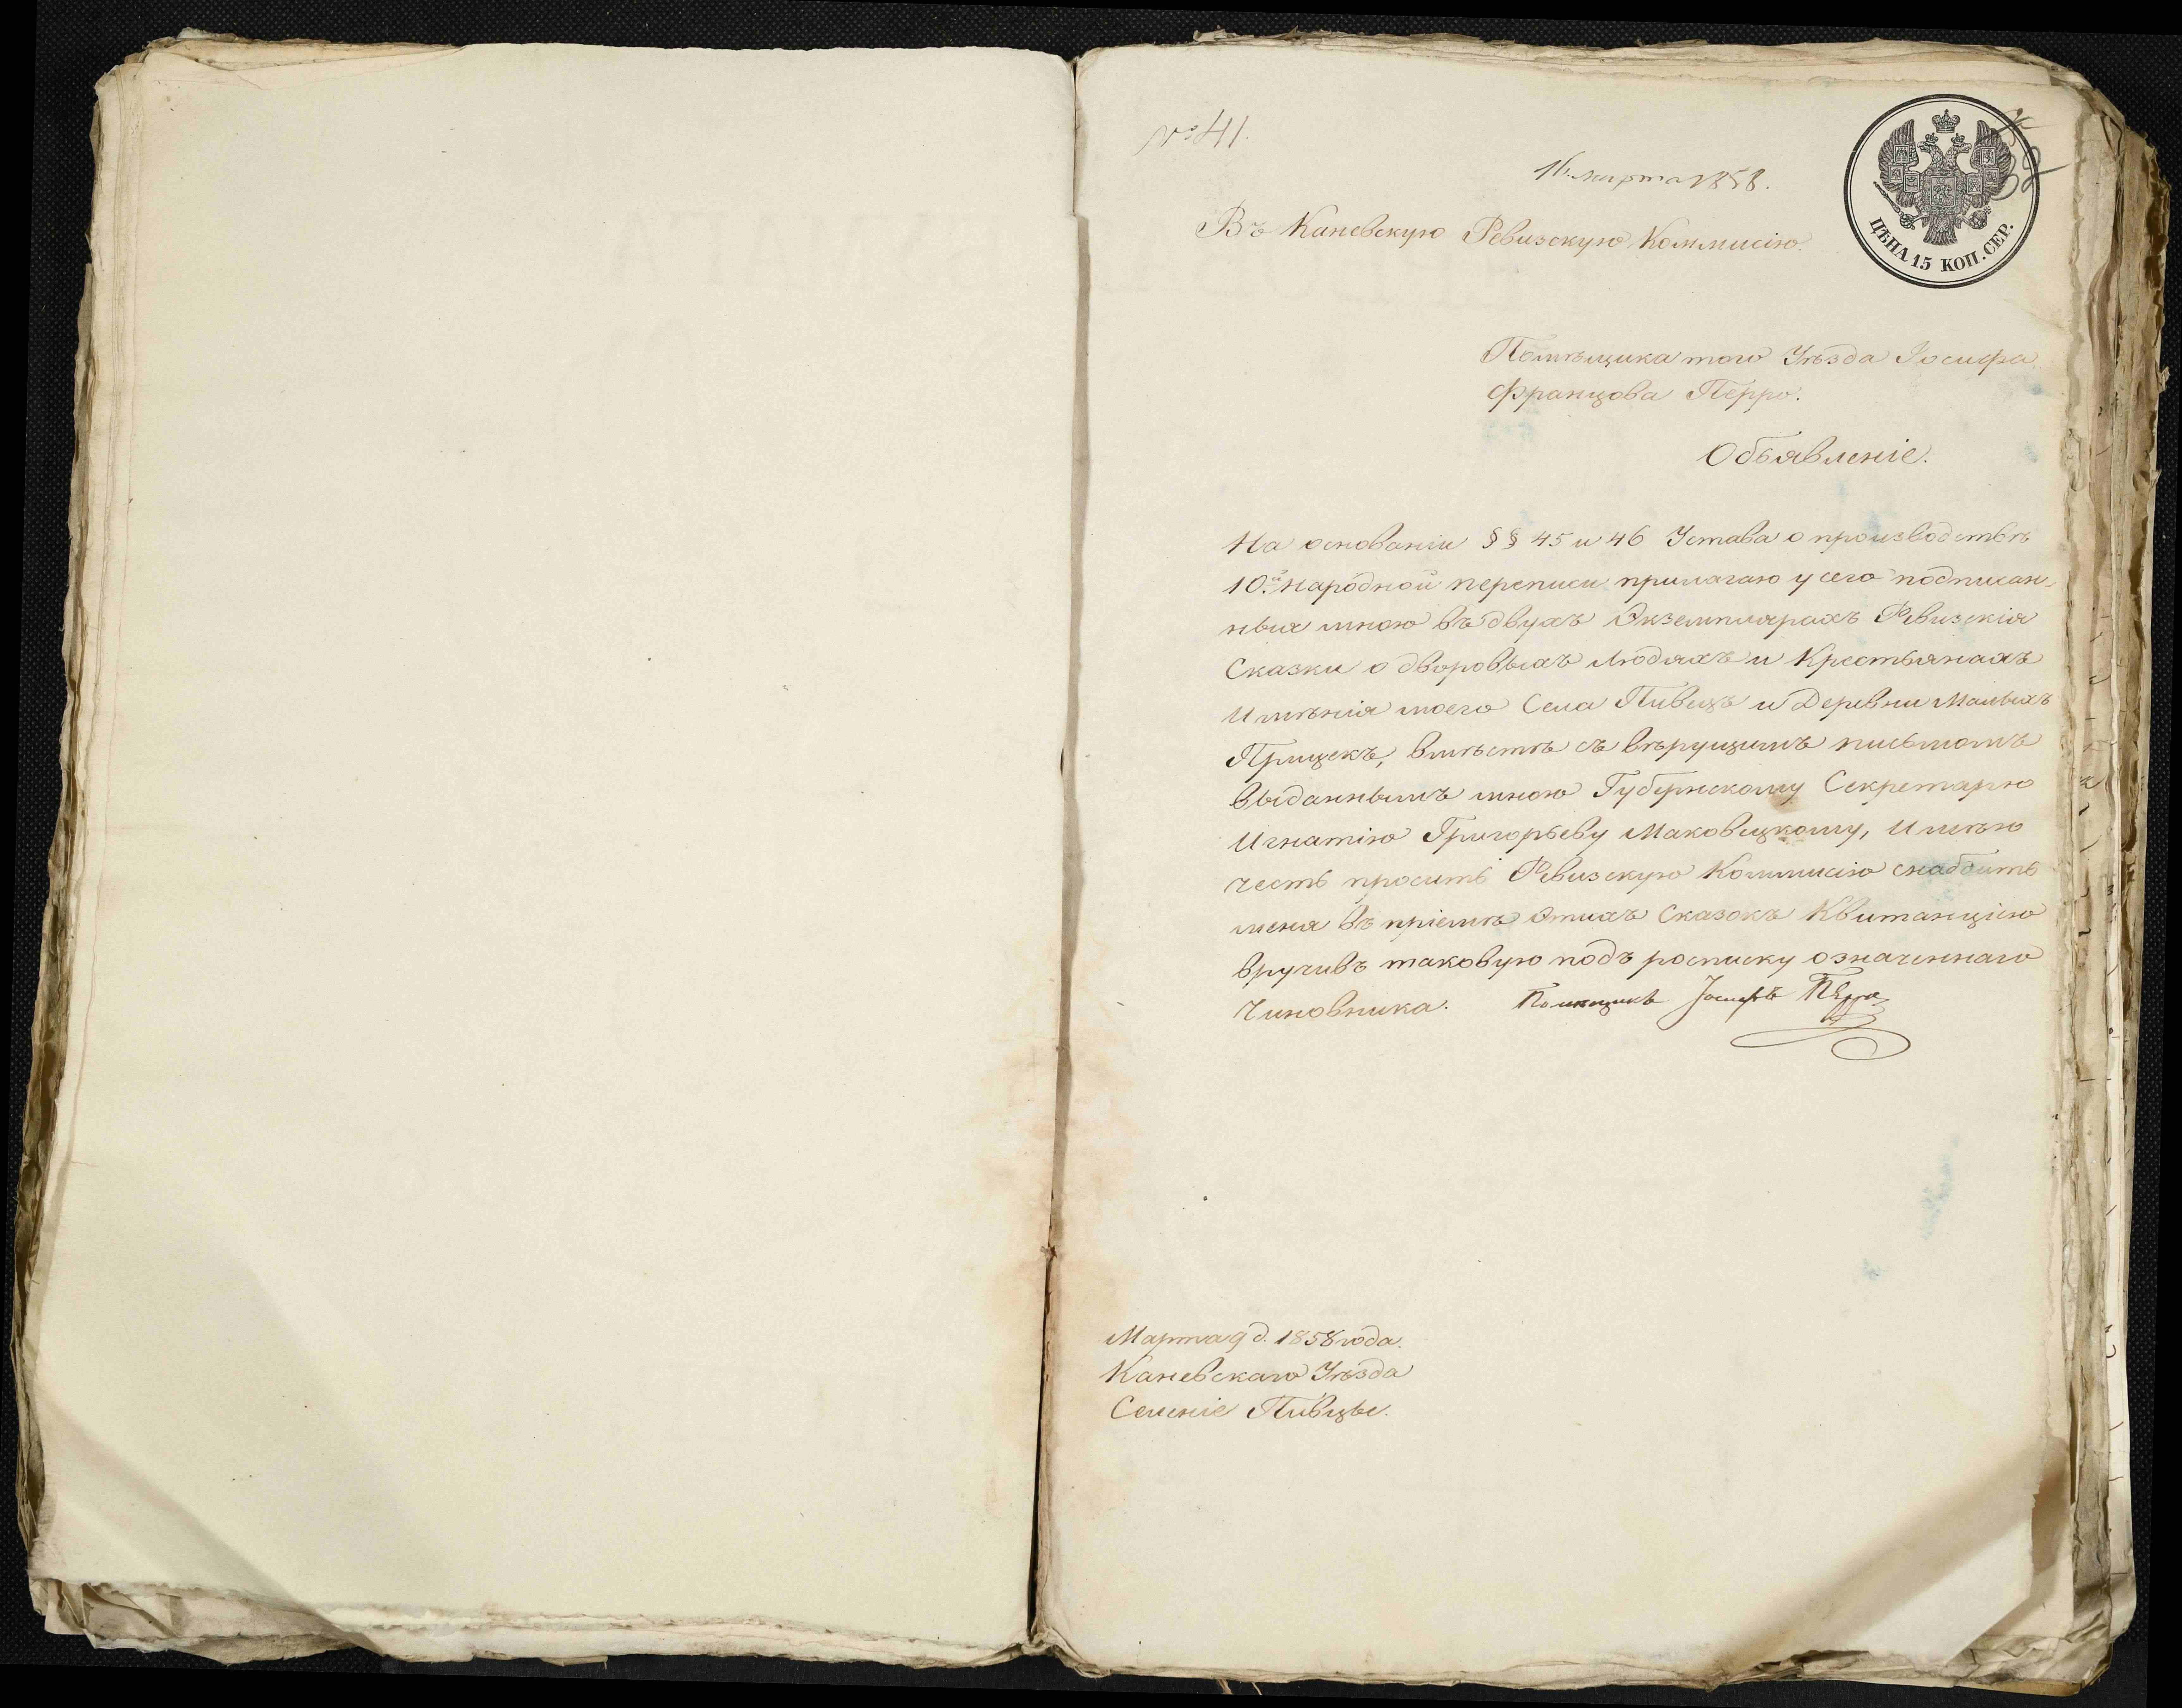 № 41.
16. марта 1858.
ЦѢНА 15 КОП. СЕР.
Въ Каневскую Ревизскую Коммисію.
Помѣщика того Уѣзда Іосифа
Францова Перро.
Объявленіе.
На основаніи §§ 45 и 46 Устава о производствѣ
10й народной переписи прилагаю у сего подписан-
ныя мною въ двухъ Экземплярахъ Ревизскія
Сказки о дворовыхъ людяхъ и Крестьянахъ
Имѣнія моего Села Пивець и Деревни Малыхъ
Прицекъ, вмѣстѣ съ вѣрущимъ письмомъ
выданнымъ мною Губернскому Секретарю
Игнатію Григорьеву Маковецкому, Имѣю
честь просить Ревизскую Коммисію снабдить
меня въ пріемѣ Этихъ Сказокъ Квитанціею
вручивъ таковую подъ росписку означеннаго
Чиновника. Помещикъ Іосифъ Перро
Марта 9 д. 1858 года.
Каневскаго Уѣзда
Селеніе Пивцы.